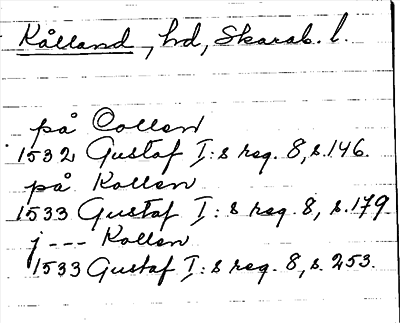 Kålland, hd, Skarab. l.
på Collen
1532 Gustaf I:s reg. 8, s. 146.
på Kollen
1533 Gustaf I:s reg. 8, s. 179
j --- Kollen
1533 Gustaf I:s reg. 8, s. 253.